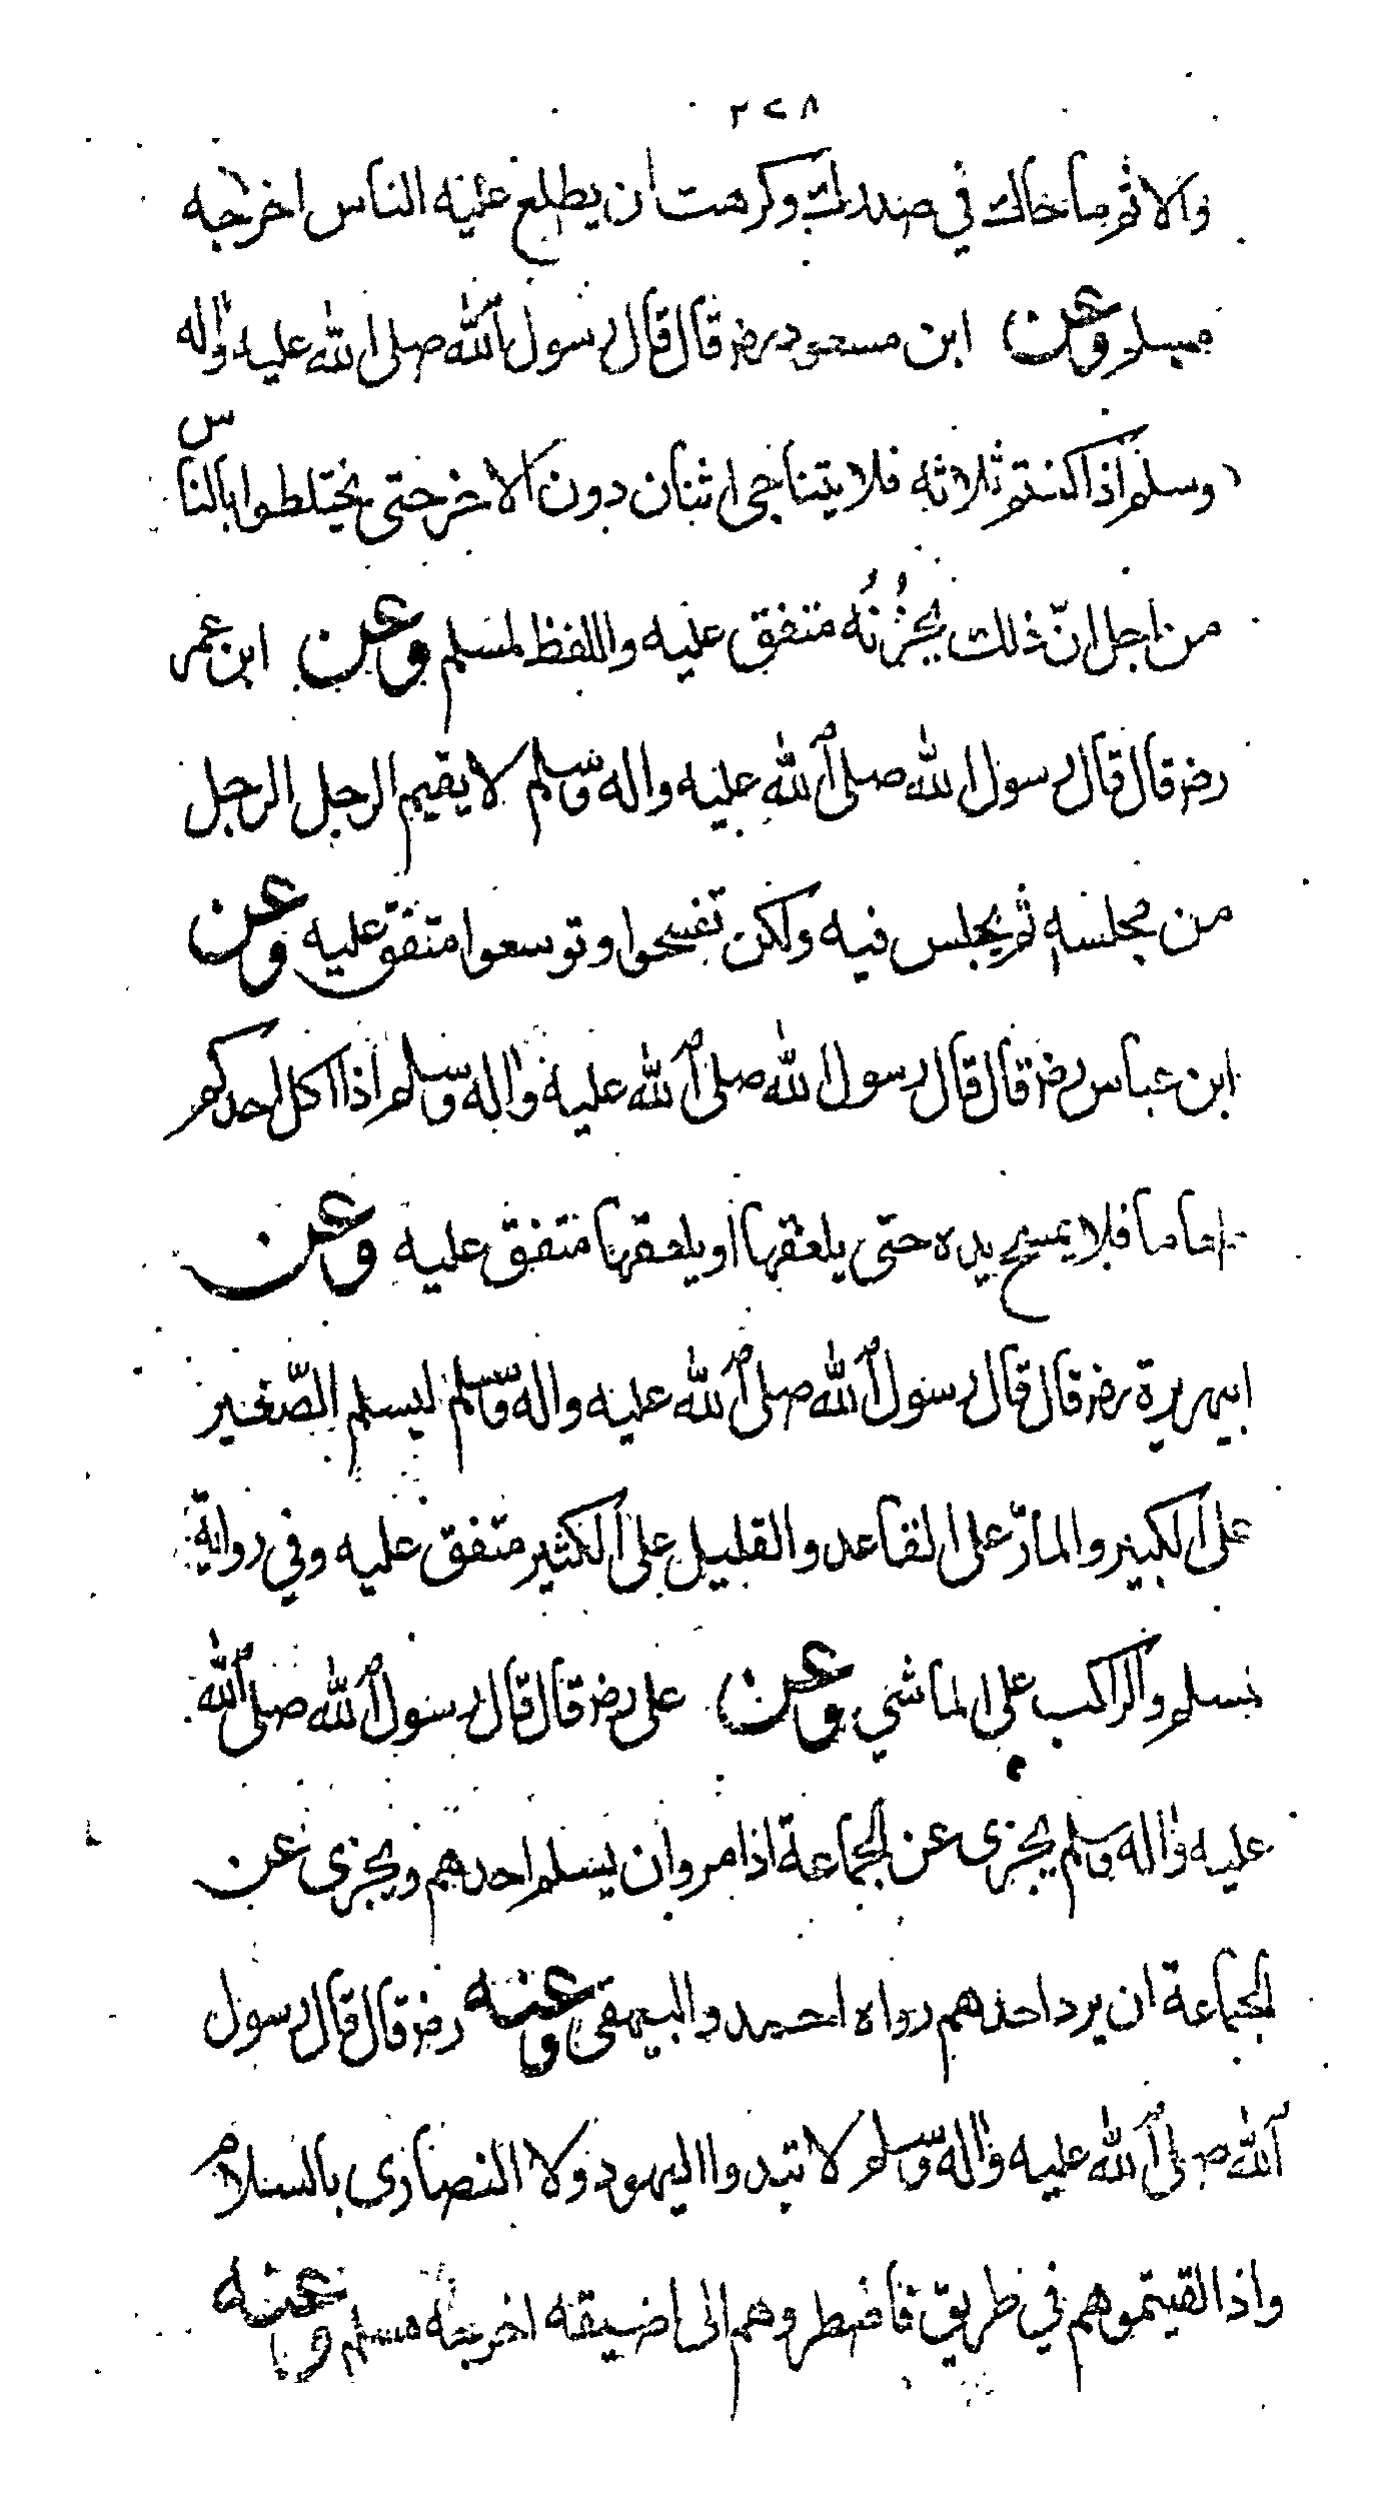 ٢٧٨
والاثم ما حاك في صدرك وكرهت ان يطلع عليه الناس اخرجه
مسلم وعن ابن مسعود رضه قال قال رسول الله صلى الله عليه واله
وسلم اذا كنتم ثلاثه فلا يتناجى اثنان دون الاخر حتى يختلطوا بالناس
من اجل انّ ذلك يحزُنُه متفق عليه واللفظ لمسلم وعن ابن عمر
رضه قال قال رسول الله صلى الله عليه واله وسلم لا يقيم الرجل الرجل
من مجلسه ثم يجلس فيه ولكن تفسحوا وتوسعوا متفق عليه وعن
ابن عباس رضه قال قال رسول الله صلى الله عليه واله وسلم اذا اكل احدكم
طعاما فلا يمسح يده حتى يلعقها او يلعقها متفق عليه وعن
ابيهريرة رضه قال قال رسول الله صلى الله عليه واله وسلم ليسلم الصّغير
على الكبير والمارّ على القاعد والقليل على الكثير متفق عليه وفي رواية
لمسلم والراكب على الماشي وعن على رضه قال قال رسول الله صلى الله
عليه واله وسلم يجزى عن الجماعة اذا مروا ان يسلم احدهم ويجزى عن
الجماعة ان يرد احدهم رواه احمد والبيهقى وعنه رضه قال قال رسول
الله صلى الله عليه واله وسلم لا تبدوا اليهود ولا النصارى بالسلام
واذا لقيتموهم في طريق فاضطروهم الى اضيقه اخرجه مسلم وعنه